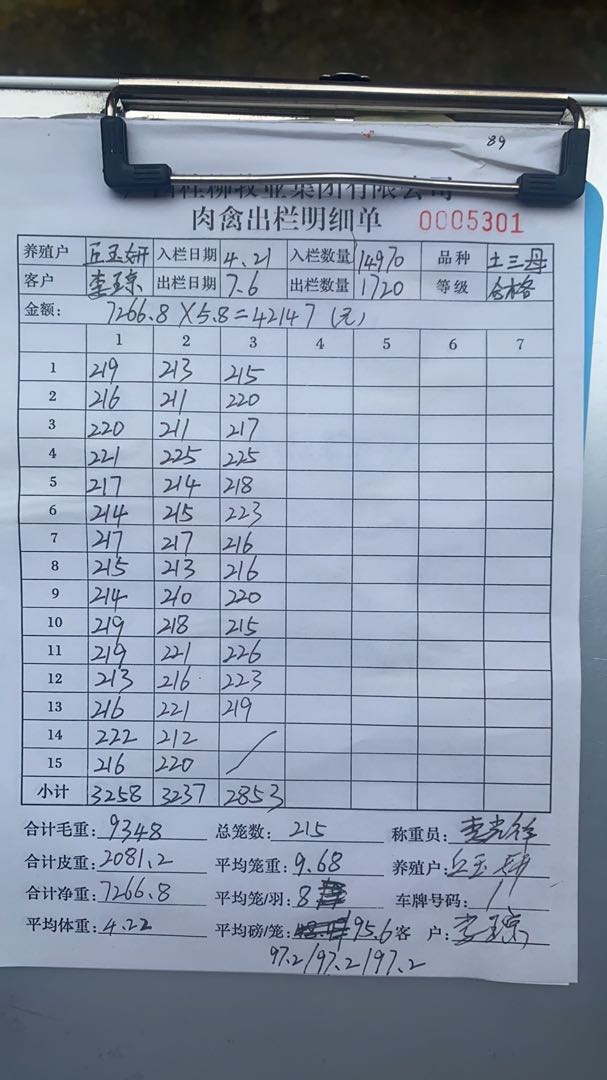 89
桂柳牧业集团有限公司
肉禽出栏明细单 0005301
养殖户 丘玉妍 入栏日期 4.21 入栏数量 14970 品种 土三母
客户 李琼 出栏日期 7.6 出栏数量 1720 等级 合格
金额: 7266.8×5.8=42147(元)
1 2 3 4 5 6 7
1 219 213 215
2 216 211 220
3 220 211 217
4 221 225 225
5 217 214 218
6 214 215 223
7 217 217 216
8 215 213 216
9 214 210 220
10 219 218 215
11 219 221 226
12 213 216 223
13 216 221 219
14 222 212
15 216 220
小计 3258 3237 2853
合计毛重: 9348 总笼数: 215 称重员:
合计皮重: 2081.2 平均笼重: 9.68 养殖户: 丘玉妍
合计净重: 7266.8 平均笼/羽: 8 车牌号码: 1
平均体重: 4.22 平均磅/笼: 95.6 客户: 李琼
97.2/97.2/97.2